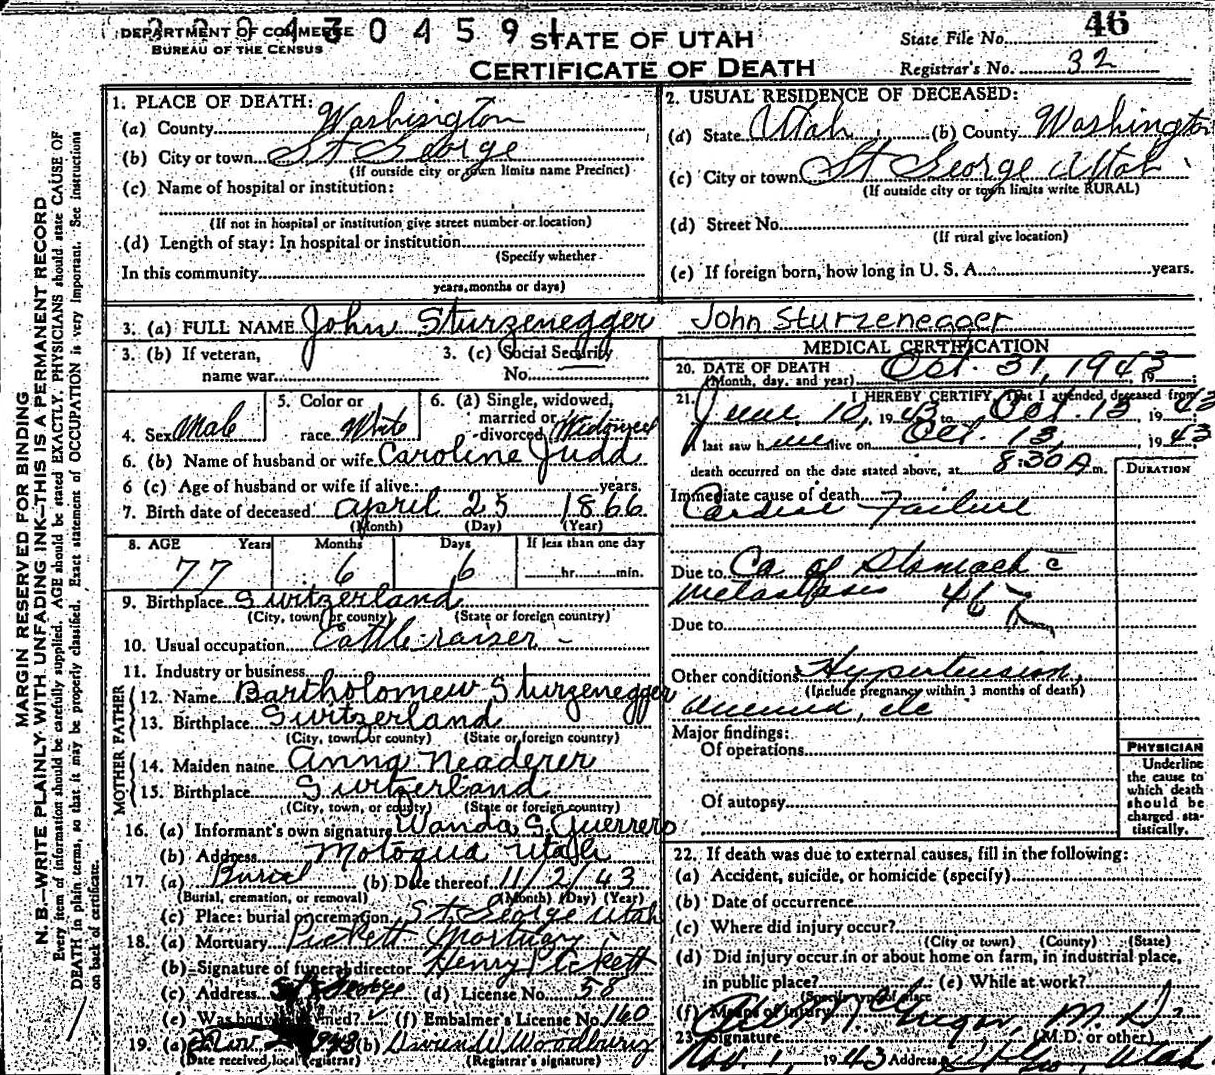 DEPARTMENT OF COMMERCE
BUREAU OF THE CENSUS
STATE OF UTAH
CERTIFICATE OF DEATH
State File No. 46
Registrar's No. 32
MARGIN RESERVED FOR BINDING
N. B.—WRITE PLAINLY WITH UNFADING INK—THIS IS A PERMANENT RECORD
Every item of information should be carefully supplied. AGE should be stated EXACTLY. PHYSICIANS should state CAUSE OF
DEATH in plain terms, so that it may be properly classified. Exact statement of OCCUPATION is very important. See instructions
on back of certificate.
1. PLACE OF DEATH:
(a) County Washington
(b) City or town St George
(If outside city or town limits name Precinct)
(c) Name of hospital or institution:
(If not in hospital or institution give street number or location)
(d) Length of stay: In hospital or institution
(Specify whether
In this community
years, months or days)
2. USUAL RESIDENCE OF DECEASED:
(a) State Utah (b) County Washington
(c) City or town St George Utah
(If outside city or town limits write RURAL)
(d) Street No.
(If rural give location)
(e) If foreign born, how long in U. S. A. years.
3. (a) FULL NAME John Sturzenegger John Sturzenegger
3. (b) If veteran,
name war
3. (c) Social Security
No.
4. Sex Male
5. Color or
race White
6. (a) Single, widowed,
married or
divorced Widowed
6. (b) Name of husband or wife Caroline Judd
6 (c) Age of husband or wife if alive: years.
7. Birth date of deceased April 25 1866
(Month) (Day) (Year)
8. AGE Years Months Days If less than one day
77 6 6 hr. min.
9. Birthplace Switzerland
(City, town, or county) (State or foreign country)
10. Usual occupation Cattle raiser
11. Industry or business
FATHER
12. Name Bartholomew Sturzenegger
13. Birthplace Switzerland
(City, town, or county) (State or foreign country)
MOTHER
14. Maiden name Anna Neaderer
15. Birthplace Switzerland
(City, town, or county) (State or foreign country)
16. (a) Informant's own signature Wanda S. Guerrero
(b) Address Motoqua Utah
17. (a) Burial (b) Date thereof 11/2/43
(Burial, cremation, or removal) (Month) (Day) (Year)
(c) Place: burial or cremation St. George Utah
18. (a) Mortuary Pickett Mortuary
(b) Signature of funeral director Henry Pickett
(c) Address St George (d) License No. 58
(e) Was body embalmed? (f) Embalmer's License No. 160
19. (a) Nov. 1943 (b) Woodbury
(Date received, local registrar) (Registrar's signature)
MEDICAL CERTIFICATION
20. DATE OF DEATH Oct. 31, 1943, 19
(Month, day, and year)
21. I HEREBY CERTIFY, That I attended deceased from
June 10, 1943 to Oct. 13 1943
I last saw him alive on Oct. 13, 1943
death occurred on the date stated above, at 8:30 A m.
DURATION
Immediate cause of death
Cardiac Failure
Due to Ca. of Stomach c
metastases 46
Due to
Other conditions Hypertension,
(Include pregnancy within 3 months of death)
anemia, etc
Major findings:
Of operations
Of autopsy
PHYSICIAN
Underline
the cause to
which death
should be
charged sta-
tistically.
22. If death was due to external causes, fill in the following:
(a) Accident, suicide, or homicide (specify)
(b) Date of occurrence
(c) Where did injury occur?
(City or town) (County) (State)
(d) Did injury occur in or about home on farm, in industrial place,
in public place? (e) While at work?
(Specify type of place
(f) Means of injury
M. D.
23. Signature (M.D. or other)
Nov. 1, 1943 Address St Geo, Utah